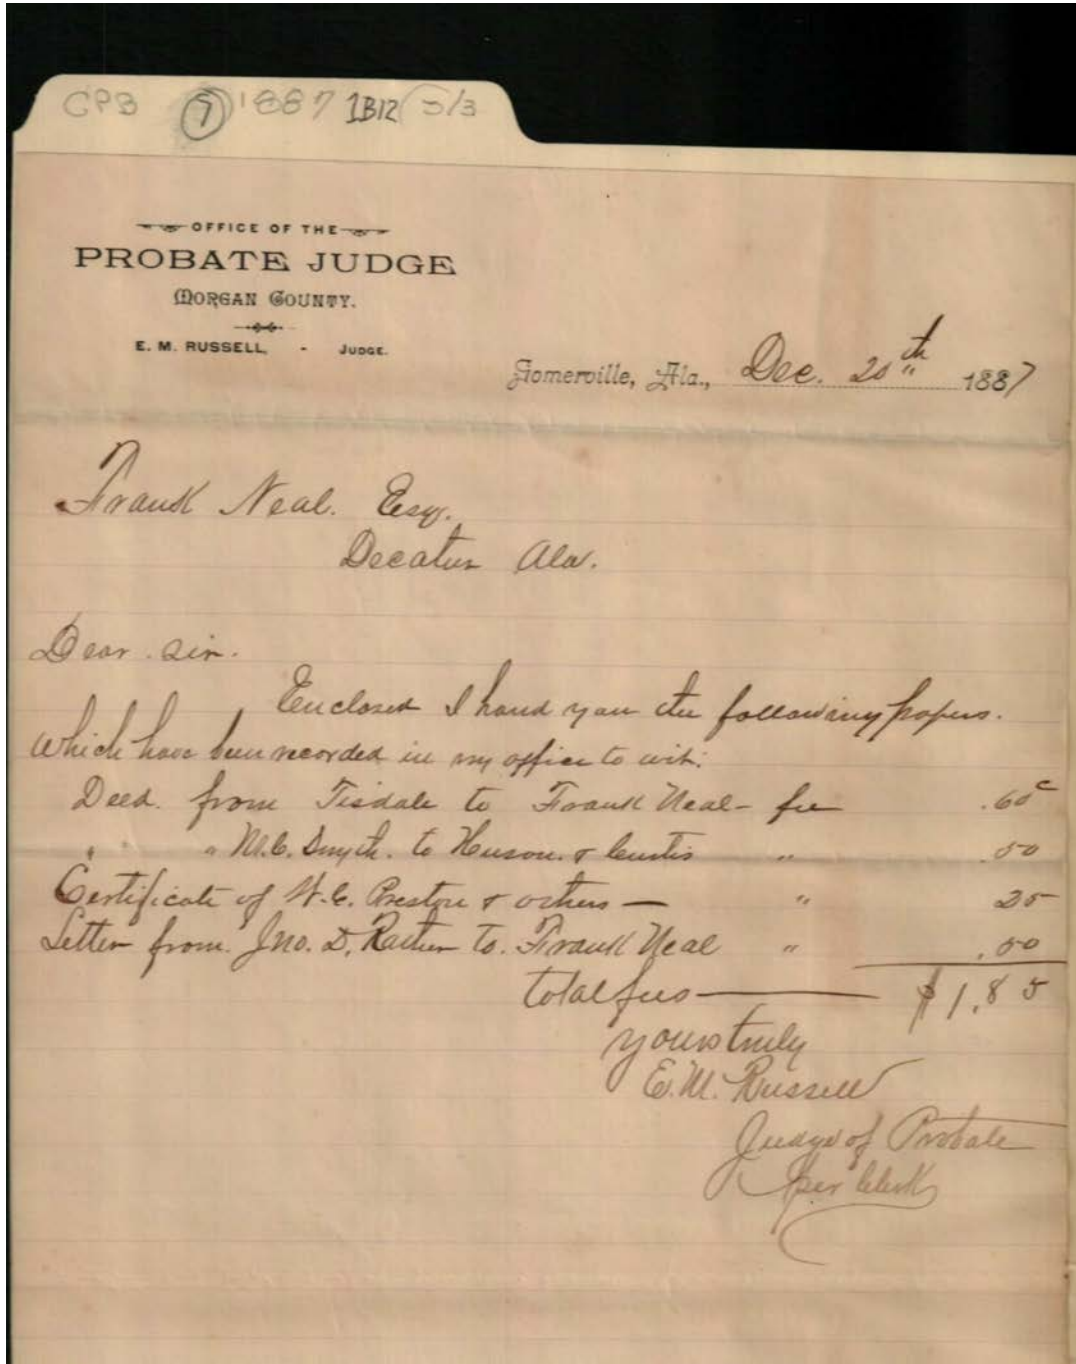 CPB 7 1887 1B12 5/3
OFFICE OF THE
PROBATE JUDGE
MORGAN COUNTY.
E. M. RUSSELL, - JUDGE.
Somerville, Ala., Dec. 20th 1887
Frank Neal. Esq.
Decatur Ala.
Dear Sir.
Enclosed I hand you the following papers.
which have been recorded in my office to wit:
Deed. from Tisdale to Frank Neal - fee .60c
" " M.C. Smyth. to & Curtis " .50
Certificate of W.C. Preston & others — " 25
Letter from Jno. D. Rather to. Frank Neal " .50
total fees — $1.85
yours truly
E.M. Russell
Judge of Probate
per Clerk